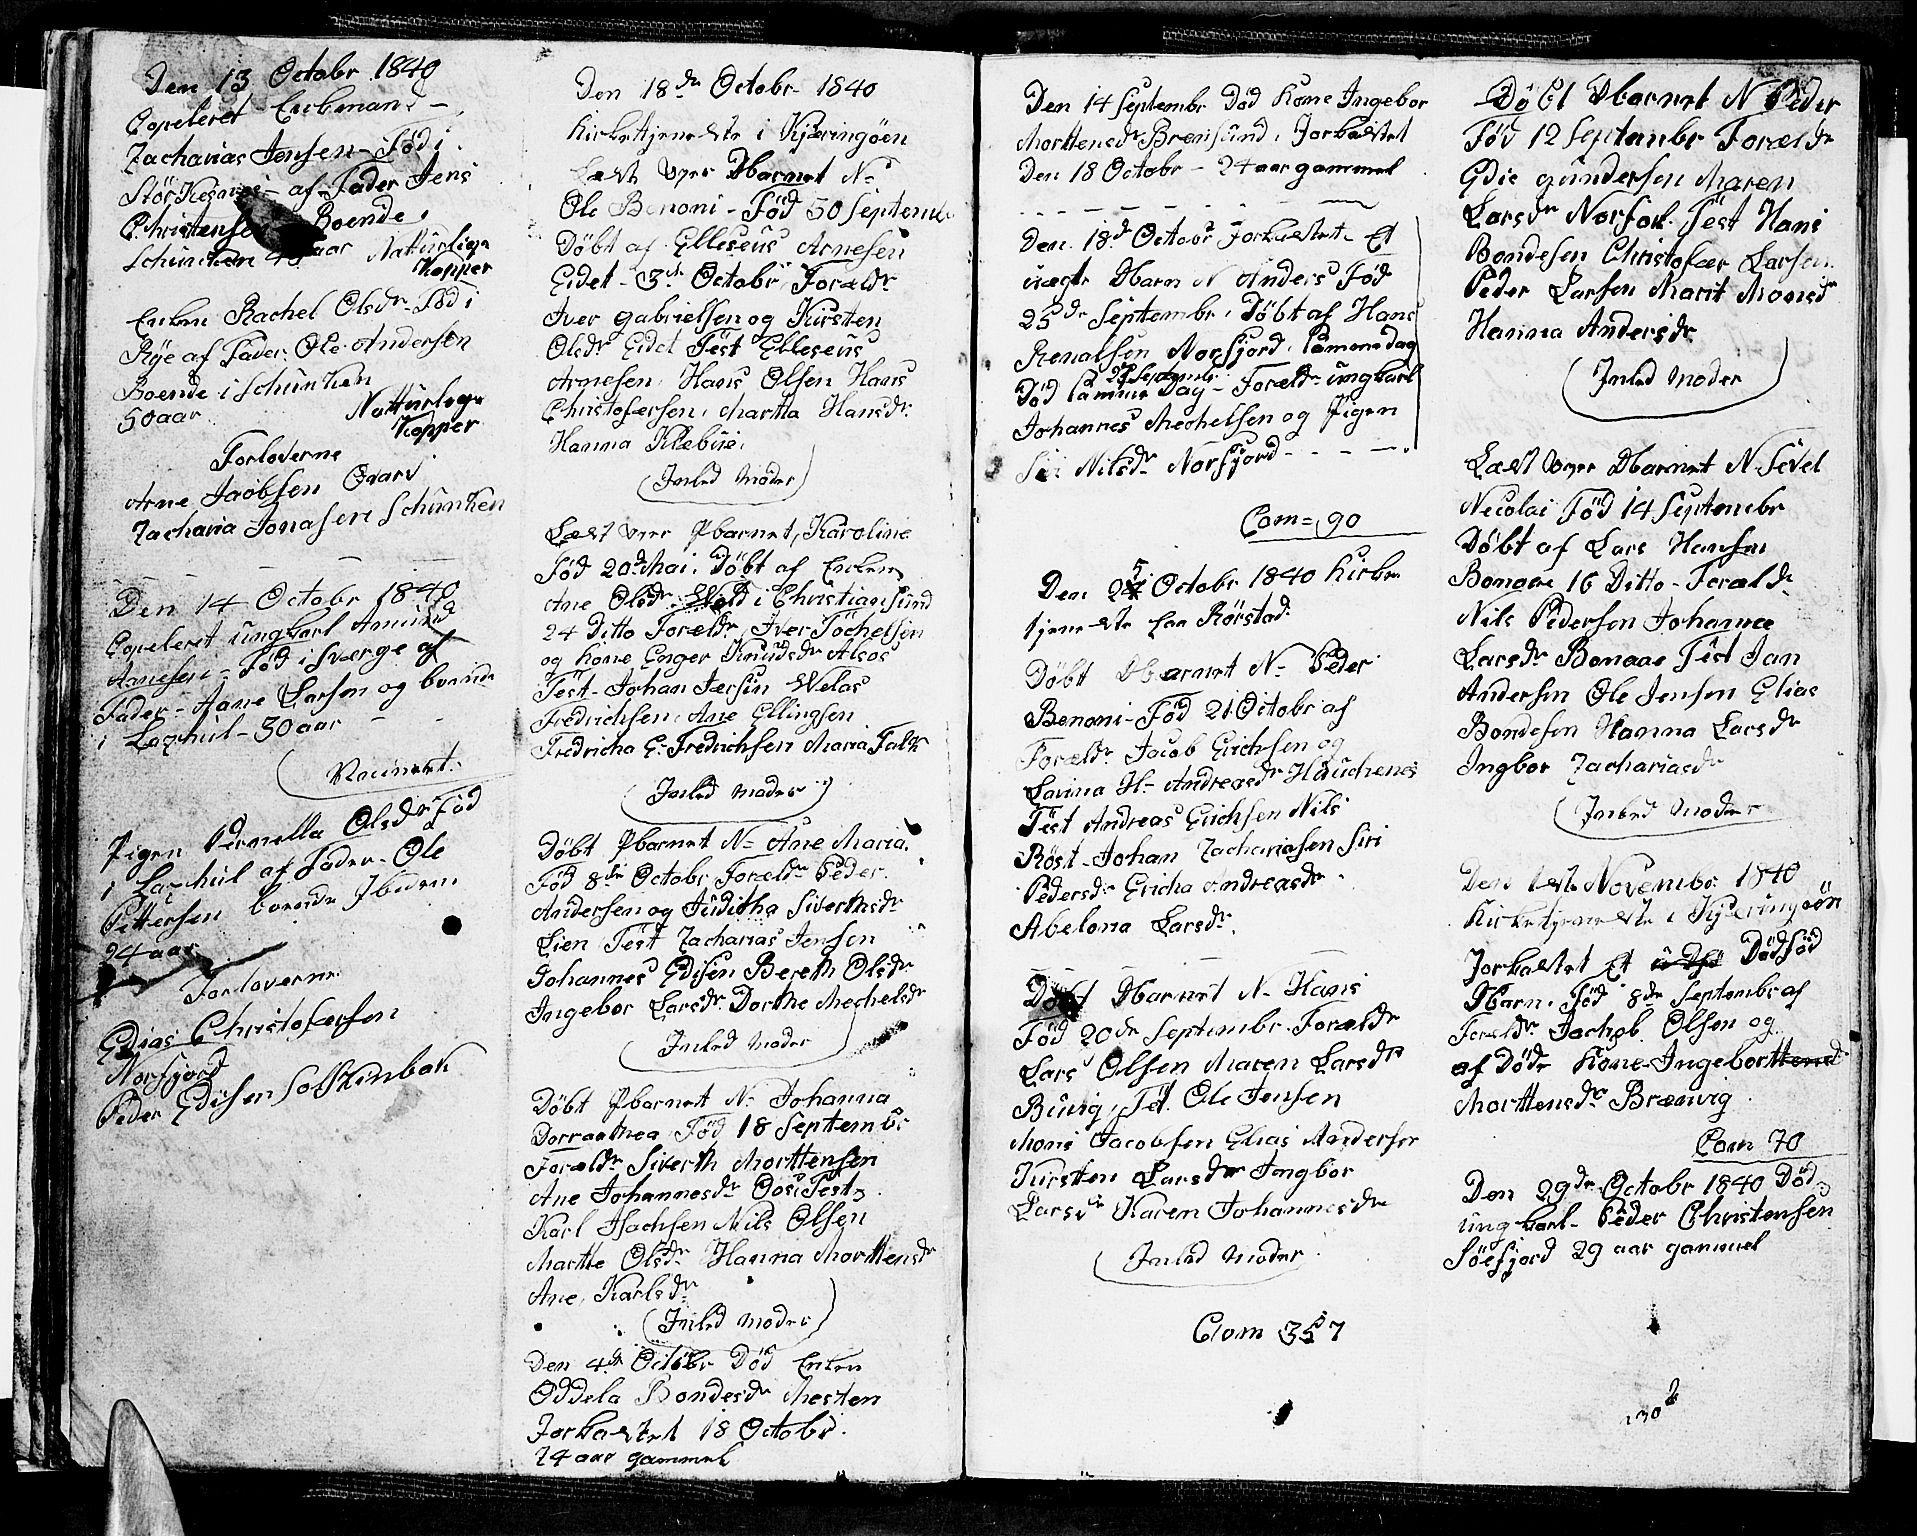 Den 13 Octobr 1840
Copeleret Enkemand -
Zacharias Jensen - Fød i
Stør - af Fader Jens
Christensen Boende
Schunken aar Naturlige
Kopper
Enken Rachel Olsdr Fød i
Røe af Fader Ole Andersen
Boende i Schunken
50 aar Natturlege
Kopper
Forloverne
Arne Jacobsen Qvarv
Zacharia Jonasen Schunken
Den 14 Octobr 1840
Copeleret ungkarl Amund
Aanesen - Fød i Sverge af
Fader - Aane Larsen og boende
i Laxhul - 30 aar
Vacineret
Pigen Pernella Olsdr Fød
i Laxhul af Fader - Ole
Pettersen boende Ibidem
24 aar
Forloverne
Edias Christofersen
Norfjord
Peder Edisen Solskinbak
Den 18de Octobr 1840
Kirketjeneste i Kjæringøen
Læst over Dbarnet N-
Ole Benoni - Fød 30 Septembr
Døbt af Elleseus Arnesen
Eidet - 3de Octobr Forældr
Iver Gabrielsen og Kirsten
Olsdr Eidet Test Elleseus
Arnesen Hans Olsen Hans
Christofersen, Martta Hansdr
Hanna Klæbue.
(Inled Moder)
Læst over Pbarnet, Karoline
Fød 20de Mai. Døbt af Enken
Ane Olsdr Wold i Christiansund
24 Ditto Forældr Iver Tøchelsen
og Kone Enger Knudsdr Alsos
Test - Johan Jersin Welas
Fredrichsen, Ane Ellingsen
Fredricha G. Fredrichsen Maria Falk
(Inled Moder)
Døbt Pbarnet N- Ane Maria
Fød 8de Octobr Forældr Peder
Andersen og Juditha Siverthsdr
Lien Test Zacharias Jensen
Johannes Edisen Bereth Olsdr
Ingebor Larsdr Dorthe Mechelsdr
(Inled Moder)
Døbt Pbarnet N- Johanna
Dorraathea Fød 18 Septembr
Forældr Siverth Morttensen
Ane Johannesdr Oos Test
Karl Isachsen Nils Olsen
Martte Olsdr Hanna Morttensdr
Ane, Karlsdr
(Inled Moder)
Den 4de Octobr Død Enken
Oddela Bondesdr Mesten
Jorkastet 18 Octobr.
74 aar gammel
Den 14 Septembr Død Kone Ingebor
Morttensdr Brensund, Jorkastet
Den 18 Octobr - 24 aar gammel
Den 18de Octobr Jorkastet Et
uægte Dbarn N Anders Fød
25de Septembr, Døbt af Hans
Renalsen Norfjord. Sammedag
29 Septembr
Død Samme Dag - Forældr ungkarl
Johannes Mechelsen og Pigen
Siri Nilsdr Norfjord - - - -
Com = 90
Den 25 Octobr 1840 Kirke
tjeneste paa Rørstad
Døbt Dbarnet N- Peder
Benoni - Fød 21 Octobr af
Forældr Jacob Erichsen og
Lavina H- Andreasdr Hauchenes
Test Andreas Erichsen Nils
Røst - Johan Zachariasen Siri
Pedersdr Ericha Andreasdr
Abelona Larsdr.
Døbt Dbarnet N- Hans
Fød 20de Septembr Forældr
Lars Olsen Maren Larsdr
Buvig, Test. Ole Jensen
Mons Jacobsen Elias Andersen
Kirsten Larsdr Ingbor
Larsdr Karen Johannesdr
(Inled Moder)
Com 357
Døbt Dbarnet N Peder
Fød 12 Septembr Forældr
Edie Gundersen Maren
Larsdr Norfol. Test Hans
Bondesen Christofær Larsen
Peder Larsen Marit Monsdr
Hanna Andersdr
(Inled Moder)
Læst over Dbarnet N- Sivel
Necolai Fød 14 Septembr
Døbt af Lars Hansen
Bonaae 16 Ditto - Forældr
Nils Pedersen Johanna
Larsdr Bonaae Test Jan
Andersen Ole Jensen Elias
Bondesen Hanna Larsdr
Ingbor Zachariasdr
(Inled Moder)
Den 1ste Novembr 1840
Kirketjeneste i Kjæringøön
Jorkastet Et Dødfød
Dbarn. Fød 8de Septembr af
Forældr Jachob Olsen og
af Døde Kone Ingebor
Morttensdr Brænvig
Com 70
Den 29de Octobr 1840 Død
ungkarl - Peder Christensen
Söefjord 29 aar gammel